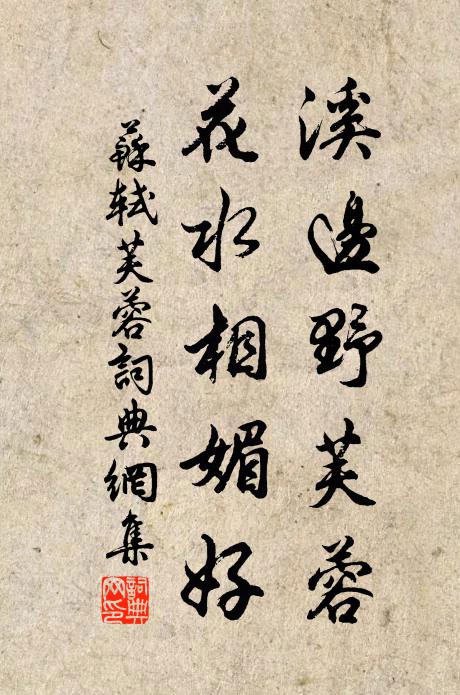 溪邊野芙蓉
花水相媚好
蘇軾芙蓉詞典網集
詞典網印